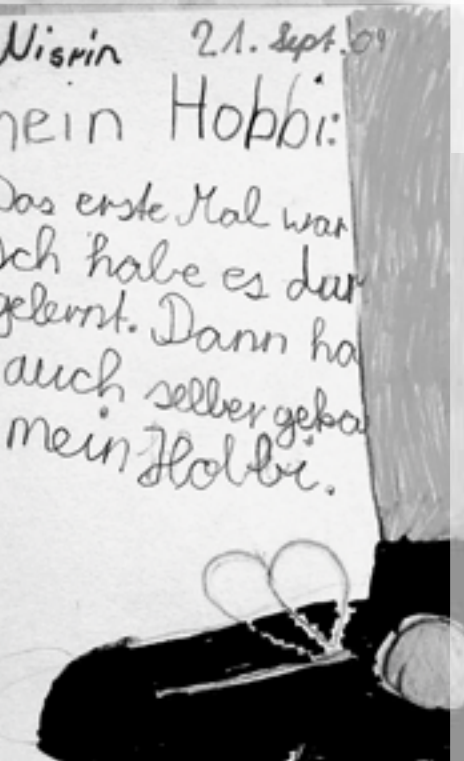 Nisrin 21. Sept. 09
mein Hobbi:
Das erste Mal war
Ich habe es dur
gelernt. Dann ha
auch selber geka
mein Hobbi.